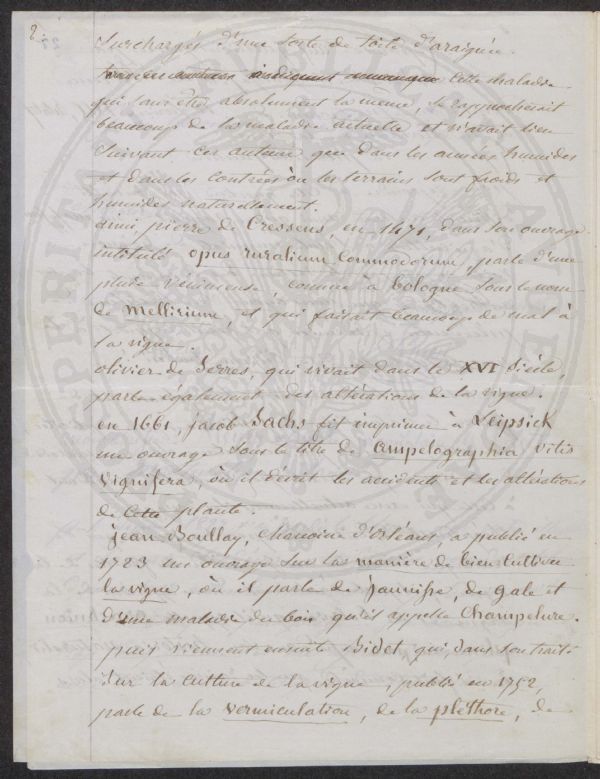 2.
Surchargés d'une sorte de toile d'araignée.
cette maladie
qui sans être absolument la même, se rapprocherait
beaucoup de la maladie actuelle et n'avait lieu
suivant ces auteurs que dans les années humides
et dans les contrées où les terrains sont froids et
humides naturellement.
ainsi, pierre de Cressens, en 1471, dans son ouvrage
intitulé opus ruralium commodorum, parle d'une
pluie vénimeuse, connue à bologne sous le nom
de Mellirium, et qui faisait beaucoup de mal à
la vigne.
olivier de Serres, qui vivait dans le XVI siècle,
parle également des altérations de la vigne.
en 1661, jacob Sachs fit imprimer à Leipsick
un ouvrage sous le titre de ampelographia vitis
vignifera, où il décrit les accidents et les altérations
de cette plante.
jean Boullay, chanoine d'Orléans, a publié en
1723 un ouvrage sur la manière de bien cultiver
la vigne, où il parle de jaunisse, de gale et
d'une maladie du bois qu'il appelle Champelure.
puis viennent ensuite Bidet, qui, dans son traité
sur la culture de la vigne, publié en 1752,
parle de la vermiculation, de la pléthore, de